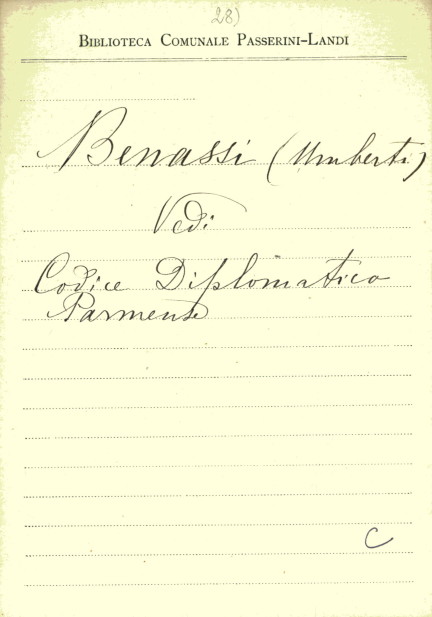 28)
BIBLIOTECA COMUNALE PASSERINI-LANDI
Benassi (Umberto)
Vedi
Codice Diplomatico
Parmense
C